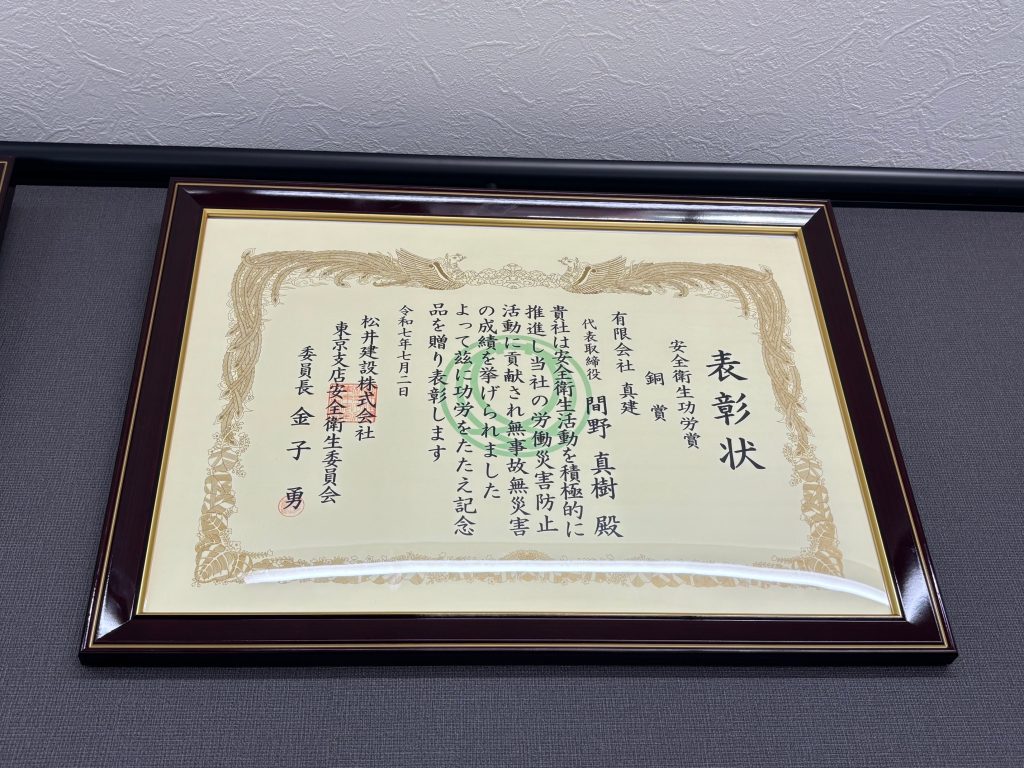 表彰状
安全衛生功労賞
銅賞
有限会社 真建
代表取締役 間野 真樹 殿
貴社は安全衛生活動を積極的に
推進し当社の労働災害防止
活動に貢献され無事故無災害
の成績を挙げられました
よって茲に功労をたたえ記念
品を贈り表彰します
令和七年七月二日
松井建設株式会社
東京支店安全衛生委員会
委員長 金子 勇